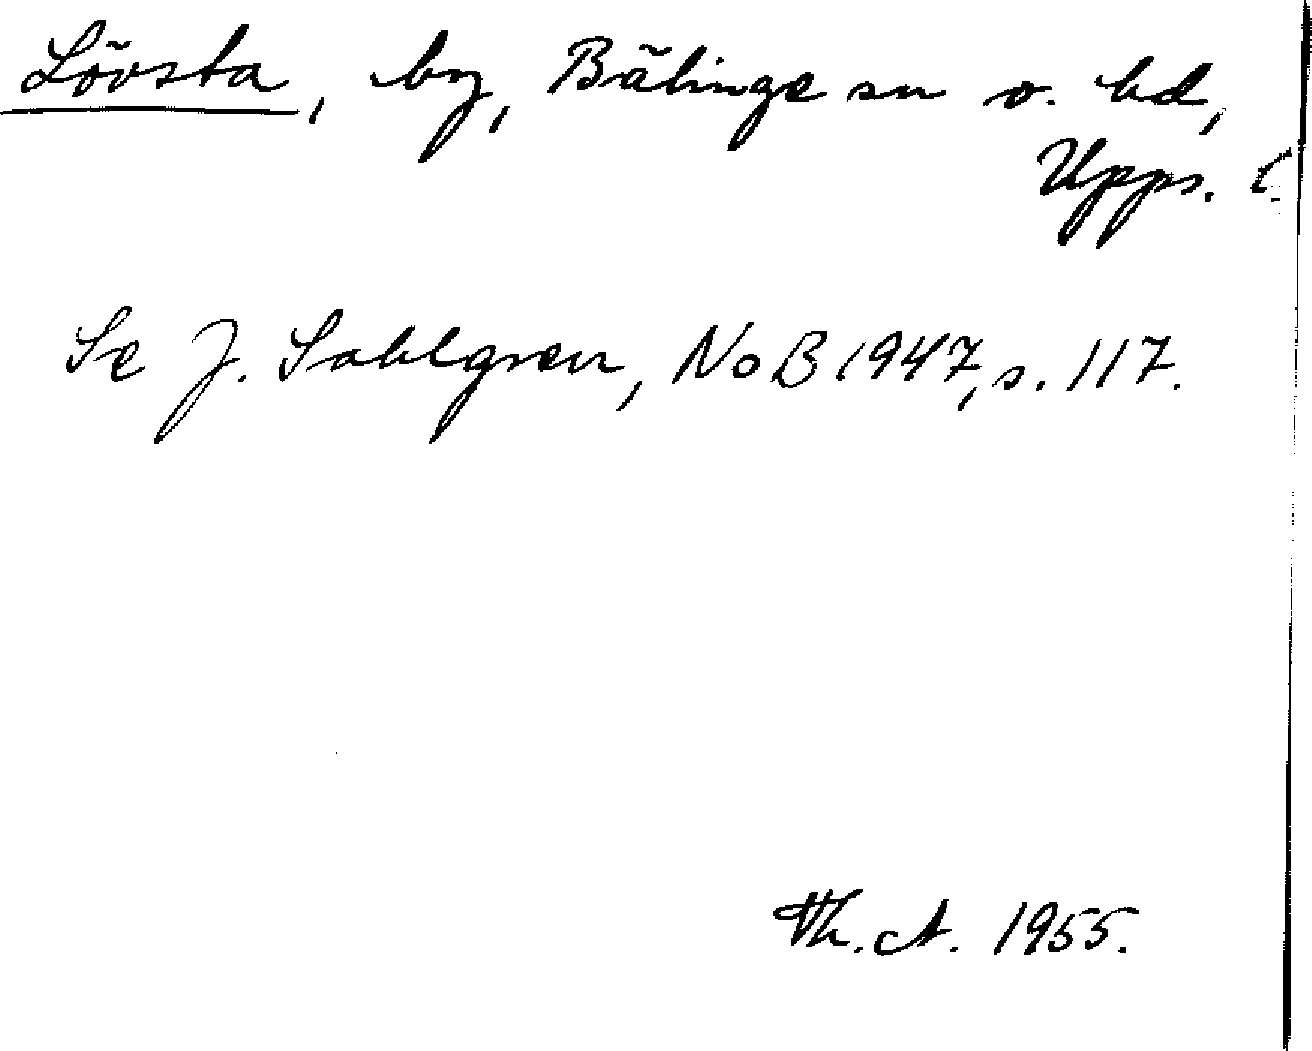 Lövsta, by, Bälinge sn o. hd,
Upps. l.
Se J. Sahlgren, NoB 1947, s. 117.
Th. A. 1955.